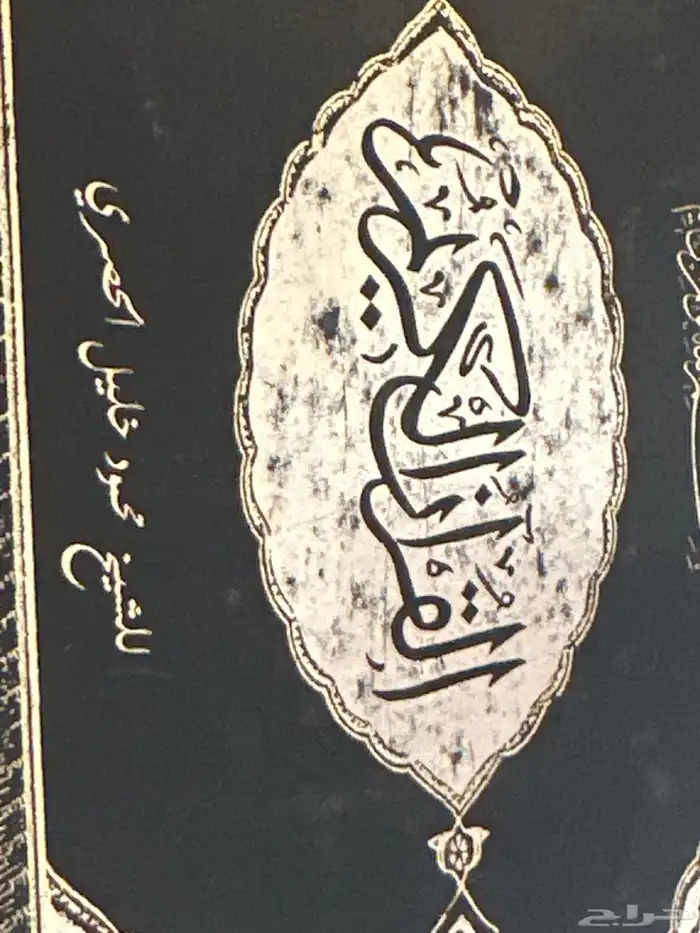 القرآن الكريم
للشيخ محمود خليل الحصري
حراج